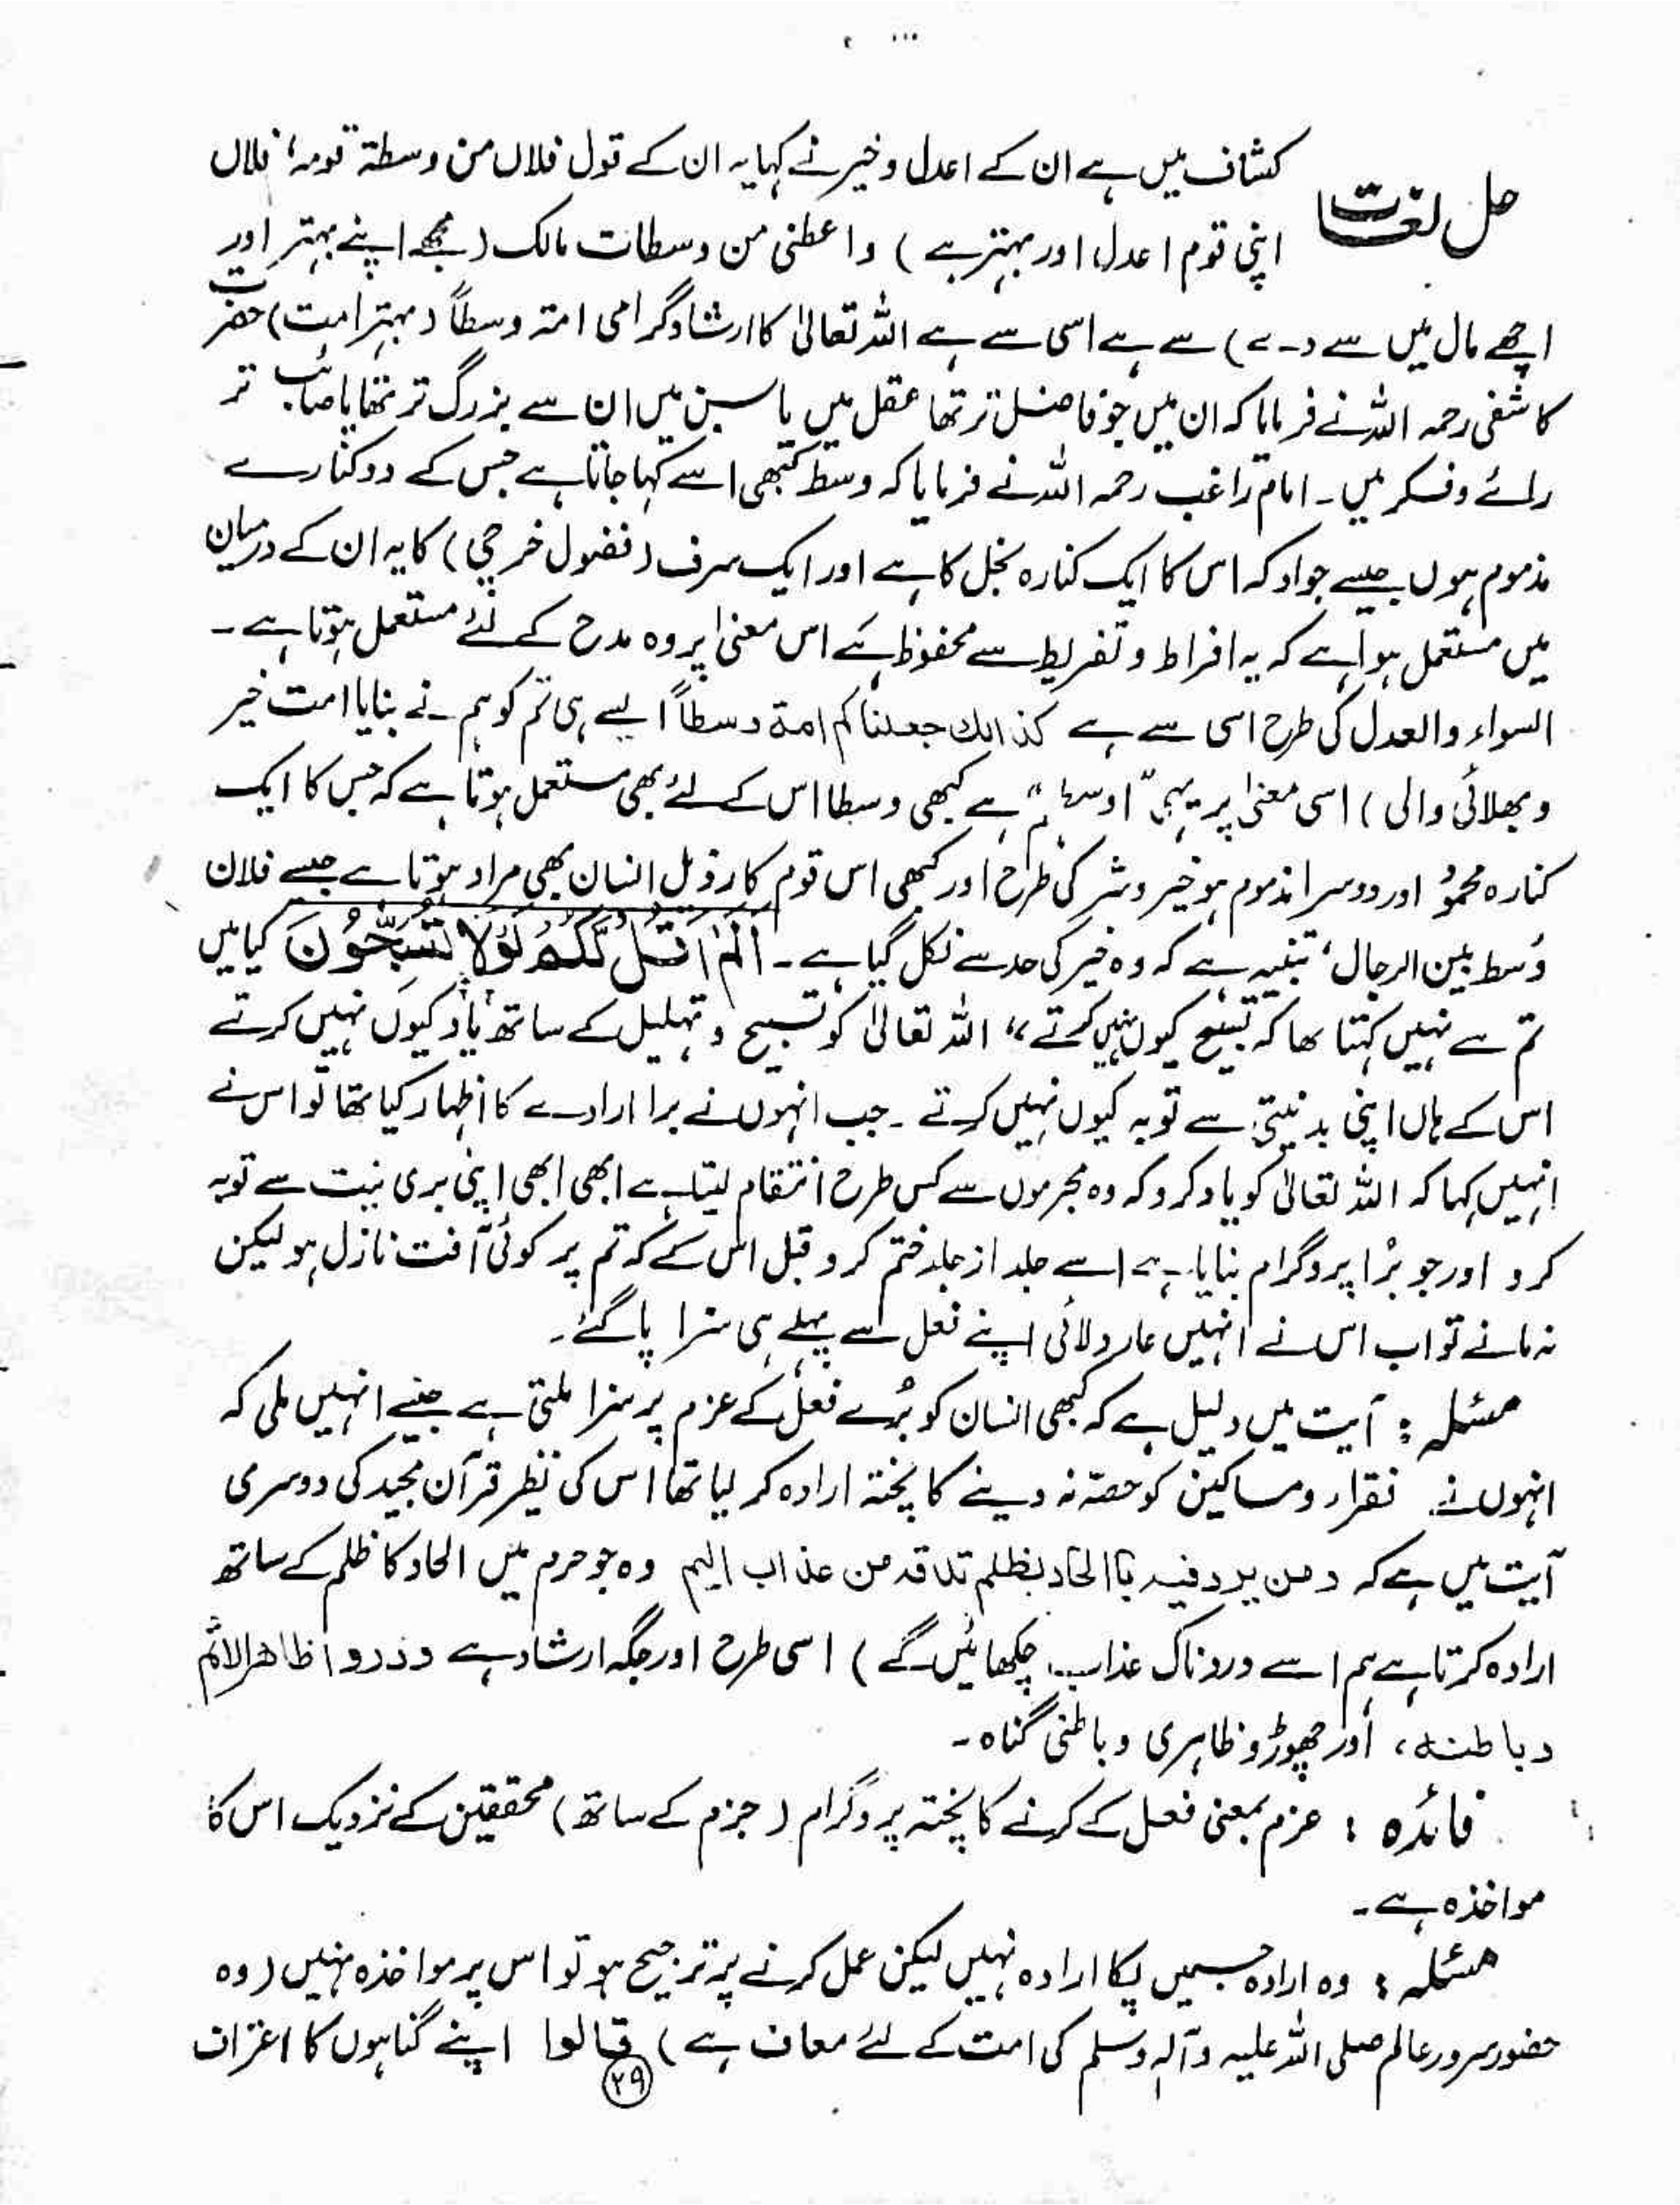 حل لغات
کشاف میں ہے ان کے اعدل و خیر نے کہا یہ ان کے قول فلان من وسطة قومہ، فلاں
اپنی قوم اعدل اور بہتر ہے ) واعطنی من وسطات مالک ( مجھے اپنے بہتر اور
اچھے مال میں سے دے ) سے ہے اسی سے ہے اللہ تعالیٰ کا ارشاد گرامی امة وسطاً ( بہتر امت ) حضرت
کاشفی رحمہ اللہ نے فرمایا کہ ان میں جو فاضل تر تھا عقل میں یا سن میں ان سے بزرگ تر تھا یا صائب تر
رائے و فکر میں ۔ امام راغب رحمہ اللہ نے فرمایا کہ وسط کبھی اسے کہا جاتا ہے جس کے دو کنارے
مذموم ہوں جیسے جواد کہ اس کا ایک کنارہ بخل کا ہے اور ایک سرف ( فضول خرچی ) کا یہ ان کے درمیان
میں مستعمل ہوا ہے کہ یہ افراط و تفریط سے محفوظ ہے اس معنیٰ پر وہ مدح کے لئے مستعمل ہوتا ہے ۔
السواء والعدل کی طرح اسی سے ہے کذالك جعلناکم امة وسطاً ایسے ہی تم کو ہم نے بنایا امت خیر
و بھلائی والی ) اسی معنیٰ پر یہی ”اوسطہم“ ہے کبھی وسطا اس کے لئے بھی مستعمل ہوتا ہے کہ جس کا ایک
کنارہ محمود اور دوسرا مذموم ہو خیر و شر کی طرح اور کبھی اس قوم کا رذیل انسان بھی مراد ہوتا ہے جیسے فلان
وسط بین الرجال، تنبیہ ہے کہ وہ خیر کی حد سے نکل گیا ہے ۔ اَلَمْ اَقُلْ لَّكُمْ لَوْلَا تُسَبِّحُوْنَ کیا میں
تم سے نہیں کہتا تھا کہ تسبیح کیوں نہیں کرتے “ اللہ تعالیٰ کو تسبیح و تہلیل کے ساتھ یاد کیوں نہیں کرتے
اس کے ہاں اپنی بد نیتی سے توبہ کیوں نہیں کرتے ۔ جب انہوں نے برا ارادے کا اظہار کیا تھا تو اس نے
انہیں کہا کہ اللہ تعالیٰ کو یاد کرو کہ وہ مجرموں سے کس طرح انتقام لیتا ہے ابھی ابھی اپنی بری نیت سے توبہ
کرو اور جو بُرا پروگرام بنایا ہے اسے جلد از جلد ختم کرو قبل اس کے کہ تم پر کوئی آفت نازل ہو لیکن
نہ مانے تو اب اس نے انہیں عار دلائی اپنے فعل سے پہلے ہی سزا پا گئے ۔
مسئلہ : آیت میں دلیل ہے کہ کبھی انسان کو بُرے فعل کے عزم پر سزا ملتی ہے جیسے انہیں ملی کہ
انہوں نے فقراء و مساکین کو حصّہ نہ دینے کا پختہ ارادہ کر لیا تھا اس کی نظیر قرآن مجید کی دوسری
آیت میں ہے کہ ومن یرد فیہ باالحاد بظلم تذقہ من عذاب الیم وہ جو حرم میں الحاد کا ظلم کے ساتھ
ارادہ کرتا ہے ہم اسے دردناک عذاب چکھائیں گے ) اسی طرح اور جگہ ارشاد ہے وذروا ظاھر الاثم
وباطنه، اور چھوڑو ظاہری و باطنی گناہ ۔
فائدہ : عزم بمعنی فعل کے کرنے کا پختہ پروگرام ( جزم کے ساتھ ) محققین کے نزدیک اس کا
مواخذہ ہے ۔
مسئلہ : وہ ارادہ جسمیں پکا ارادہ نہیں لیکن عمل کرنے پر ترجیح ہو تو اس پر مواخذہ نہیں ( وہ
حضور سرور عالم صلی اللہ علیہ وآلہ وسلم کی امت کے لئے معاف ہے ) قالوا اپنے گناہوں کا اعتراف
۲۹